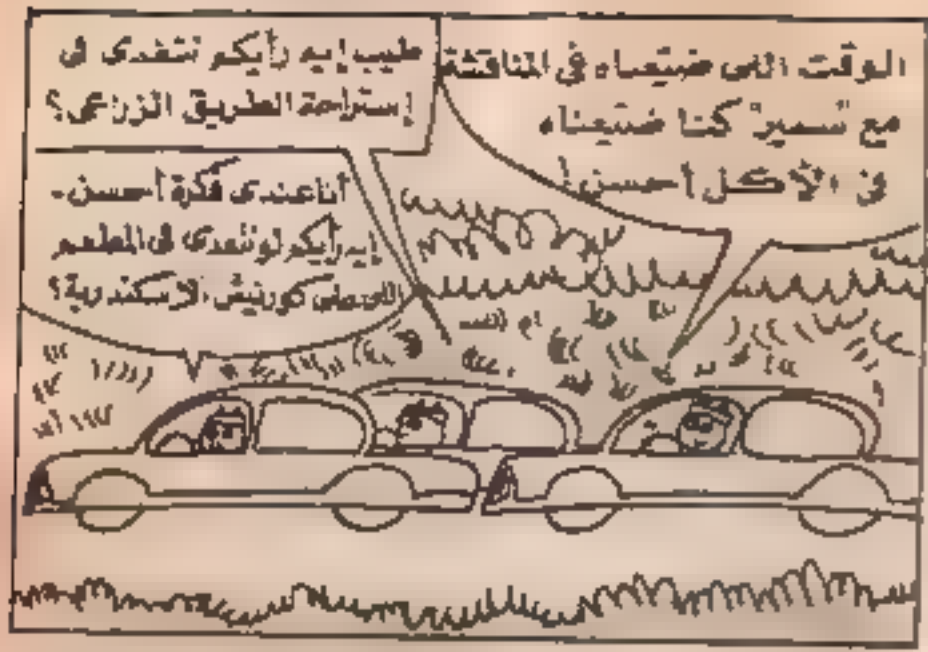 الوقت اللى ضيّعناه فى المناقشة
مع "سمير" كنا ضيّعناه
فى الأكل أحسن!
طيب إيه رأيكم نتغدى فى
إستراحة الطريق الزراعى؟
أنا عندى فكرة أحسن-
إيه رأيكم لو نتغدى فى المطعم
اللى على كورنيش الإسكندرية؟